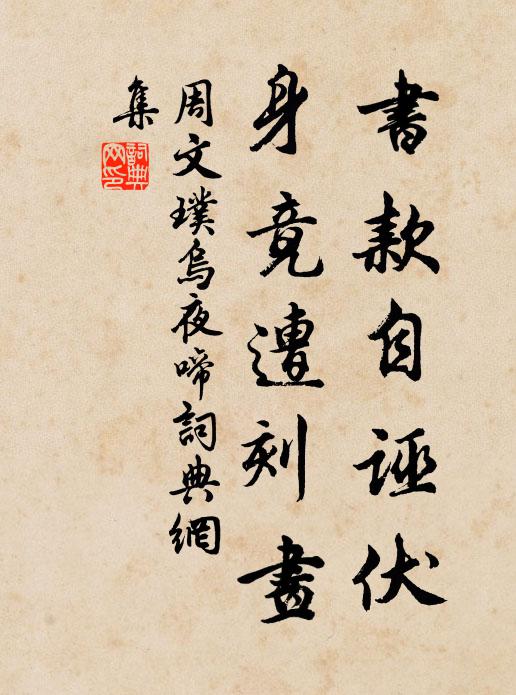 書款自誣伏
身竟遭刻畫
周文璞烏夜啼詞典網
集
詞典網印